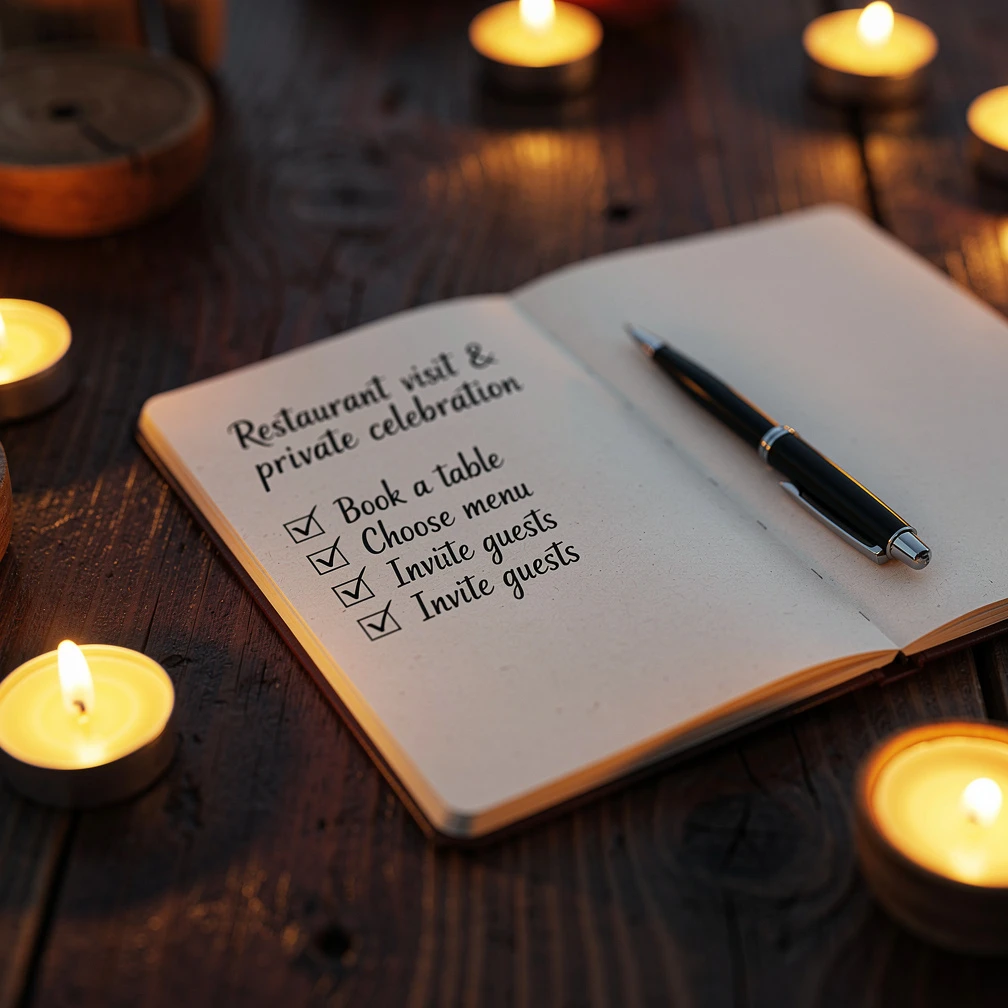 Restaurant visit &
private celebration
☑ Book a table
☑ Choose menu
☑ Inviite guests
☑ Invite guests